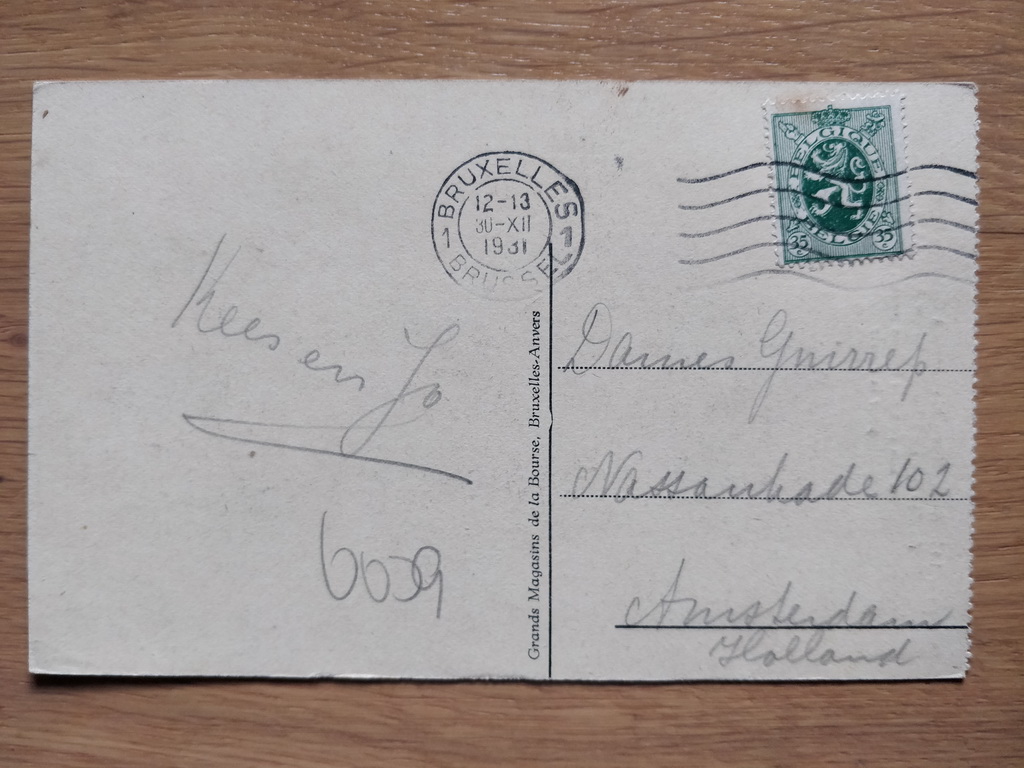 BRUXELLES
12-13
30-XII
1931
1 1
BRUSSEL
BELGIQUE
BELGIE
35 35
Kees en Jo
6009
Grands Magasins de la Bourse, Bruxelles-Anvers
Dames Gnirrep
Nassaukade 102
Amsterdam
Holland